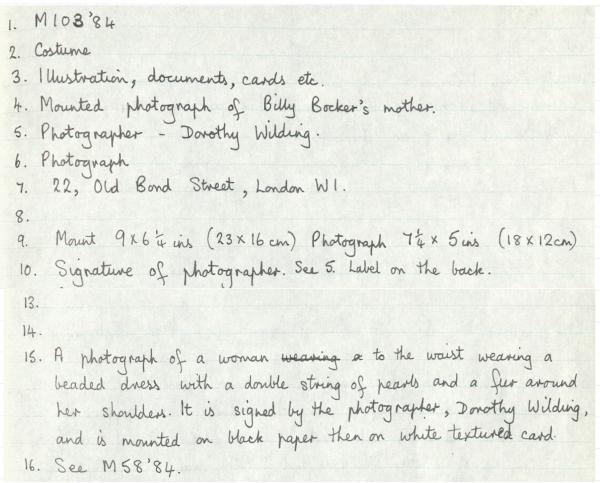 1. M103'84
2. Costume
3. Illustration, documents, cards etc.
4. Mounted photograph of Billy Bocker's mother.
5. Photographer - Dorothy Wilding.
6. Photograph
7. 22, Old Bond Street, London W1.
8.
9. Mount 9x6¼ ins (23x16 cm) Photograph 7¼ x 5 ins (18x12cm)
10. Signature of photographer. See 5. Label on the back.
13.
14.
15. A photograph of a woman wearing a to the waist wearing a
beaded dress with a double string of pearls and a fur around
her shoulders. It is signed by the photographer, Dorothy Wilding,
and is mounted on black paper then on white textured card.
16. See M58'84.